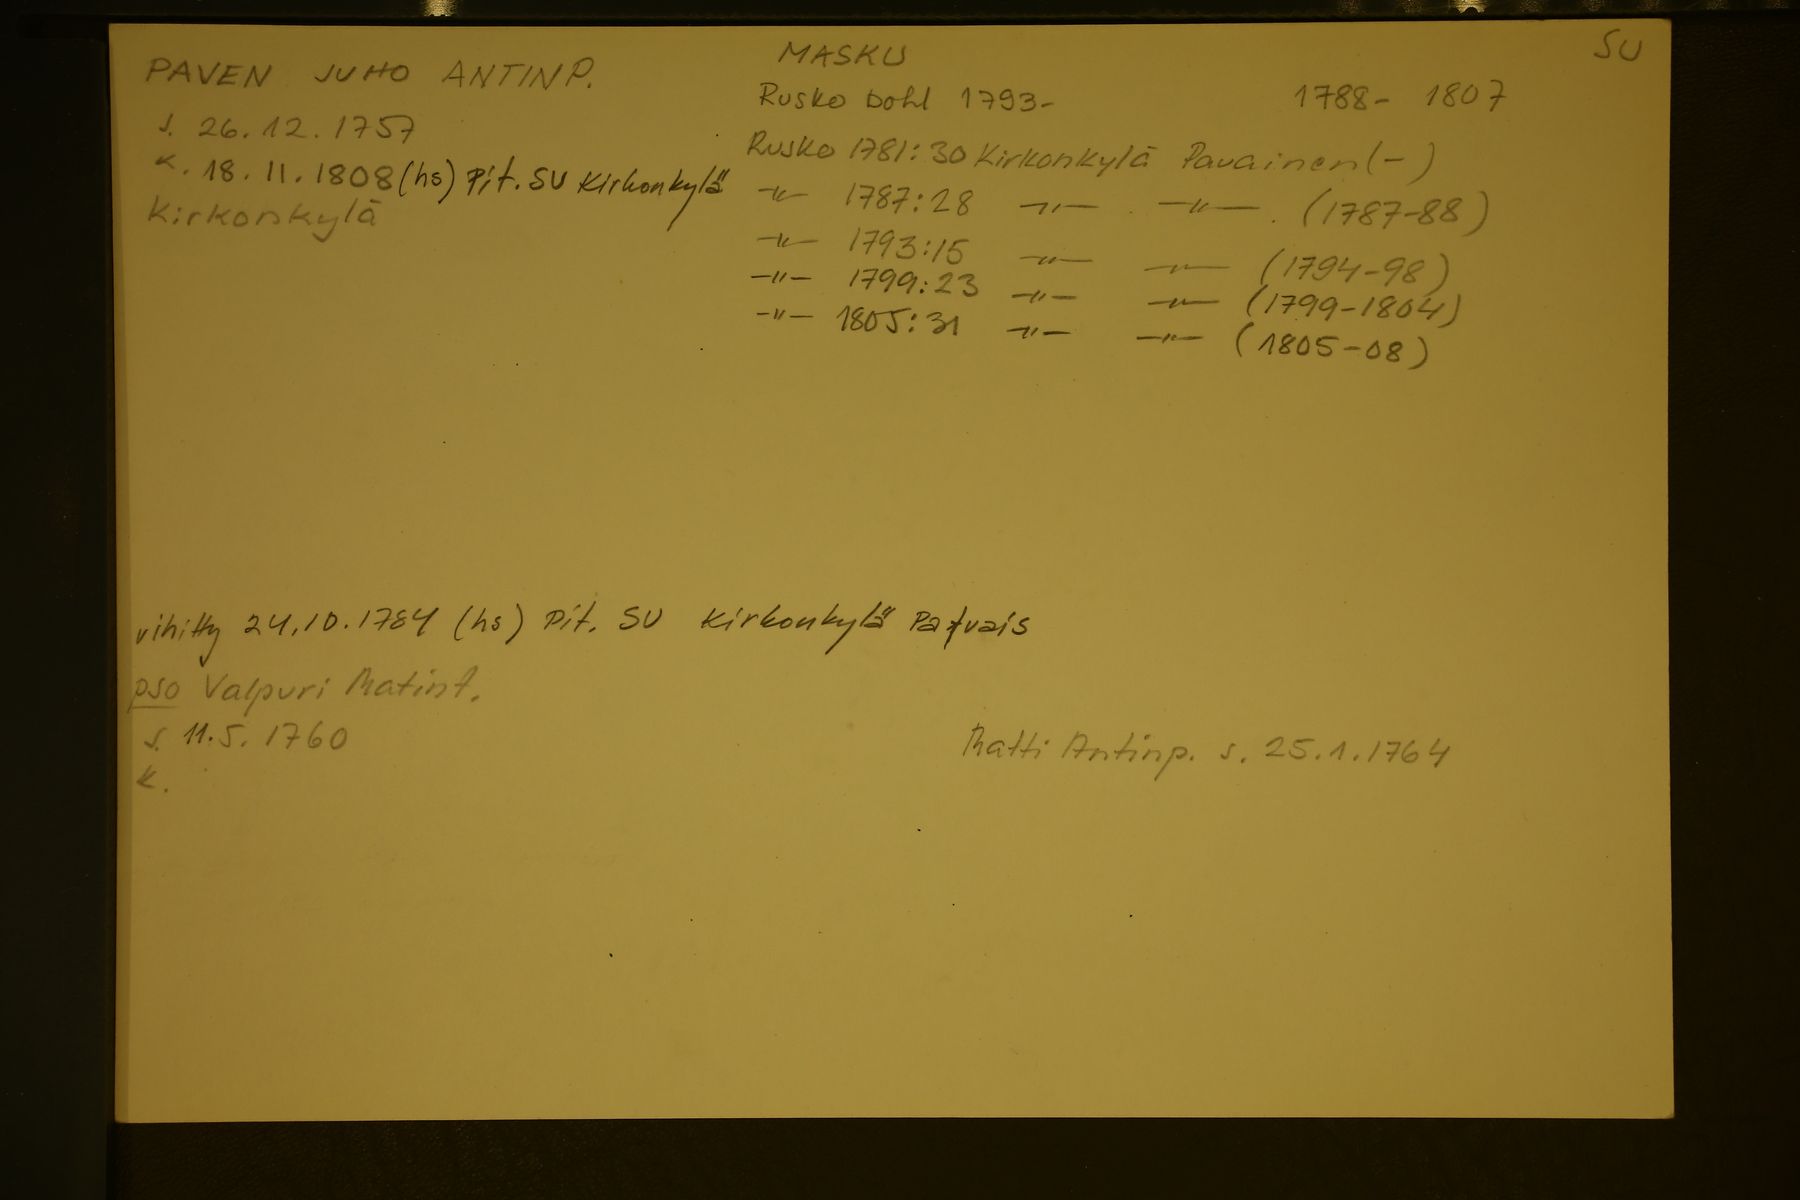 PAVEN JUHO ANTINP.
s. 26.12.1757
k. 18.11.1808 (hs) Pit. SU Kirkonkylä
Kirkonkylä
MASKU
SU
Rusko Dohl 1793- 1788- 1807
Rusko 1781:30 Kirkonkylä Pavainen (-)
-"- 1787:28 -"- -"- (1787-88)
-"- 1793:15 -"- -"- (1794-98)
-"- 1799:23 -"- -"- (1799-1804)
-"- 1805:31 -"- -"- (1805-08)
vihitty 24.10.1784 (hs) Pit. SU Kirkonkylä
pso Valpuri Matint.
s. 11.5.1760
k.
Matti Antinp. s. 25.1.1764